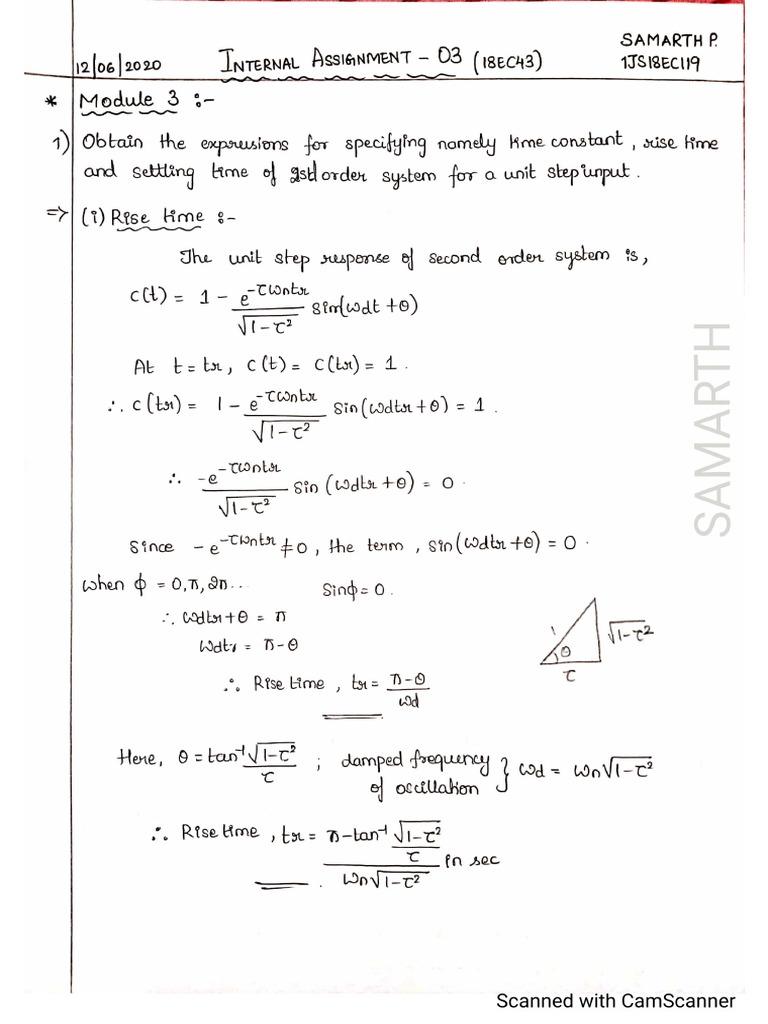 12/06/2020 INTERNAL ASSIGNMENT - 03 (18EC43) SAMARTH P.
1JS18EC119
* Module 3 :-
1) Obtain the expressions for specifying namely time constant, rise time
and settling time of order system for a unit step input.
=> (i) Rise time :-
The unit step response of second order system is,
c(t) = 1 - e^{-τωntr}/√(1-τ²) sin(ωdt + θ)
At t = tr, c(t) = c(tr) = 1.
∴ c(tr) = 1 - e^{-τωntr}/√(1-τ²) sin(ωdtr + θ) = 1.
∴ -e^{-τωntr}/√(1-τ²) sin(ωdtr + θ) = 0.
Since -e^{-τωntr} ≠ 0, the term, sin(ωdtr + θ) = 0.
when ϕ = 0, π, 2π... Sinϕ = 0.
∴ ωdtr + θ = π
ωdtr = π - θ
1 √(1-τ²)
θ
τ
∴ Rise time, tr = (π-θ)/ωd
Here, θ = tan⁻¹ √(1-τ²)/τ ; damped frequency of oscillation } ωd = ωn√(1-τ²)
∴ Rise time, tr = (π - tan⁻¹ √(1-τ²)/τ)/(ωn√(1-τ²)) in sec
SAMARTH
Scanned with CamScanner